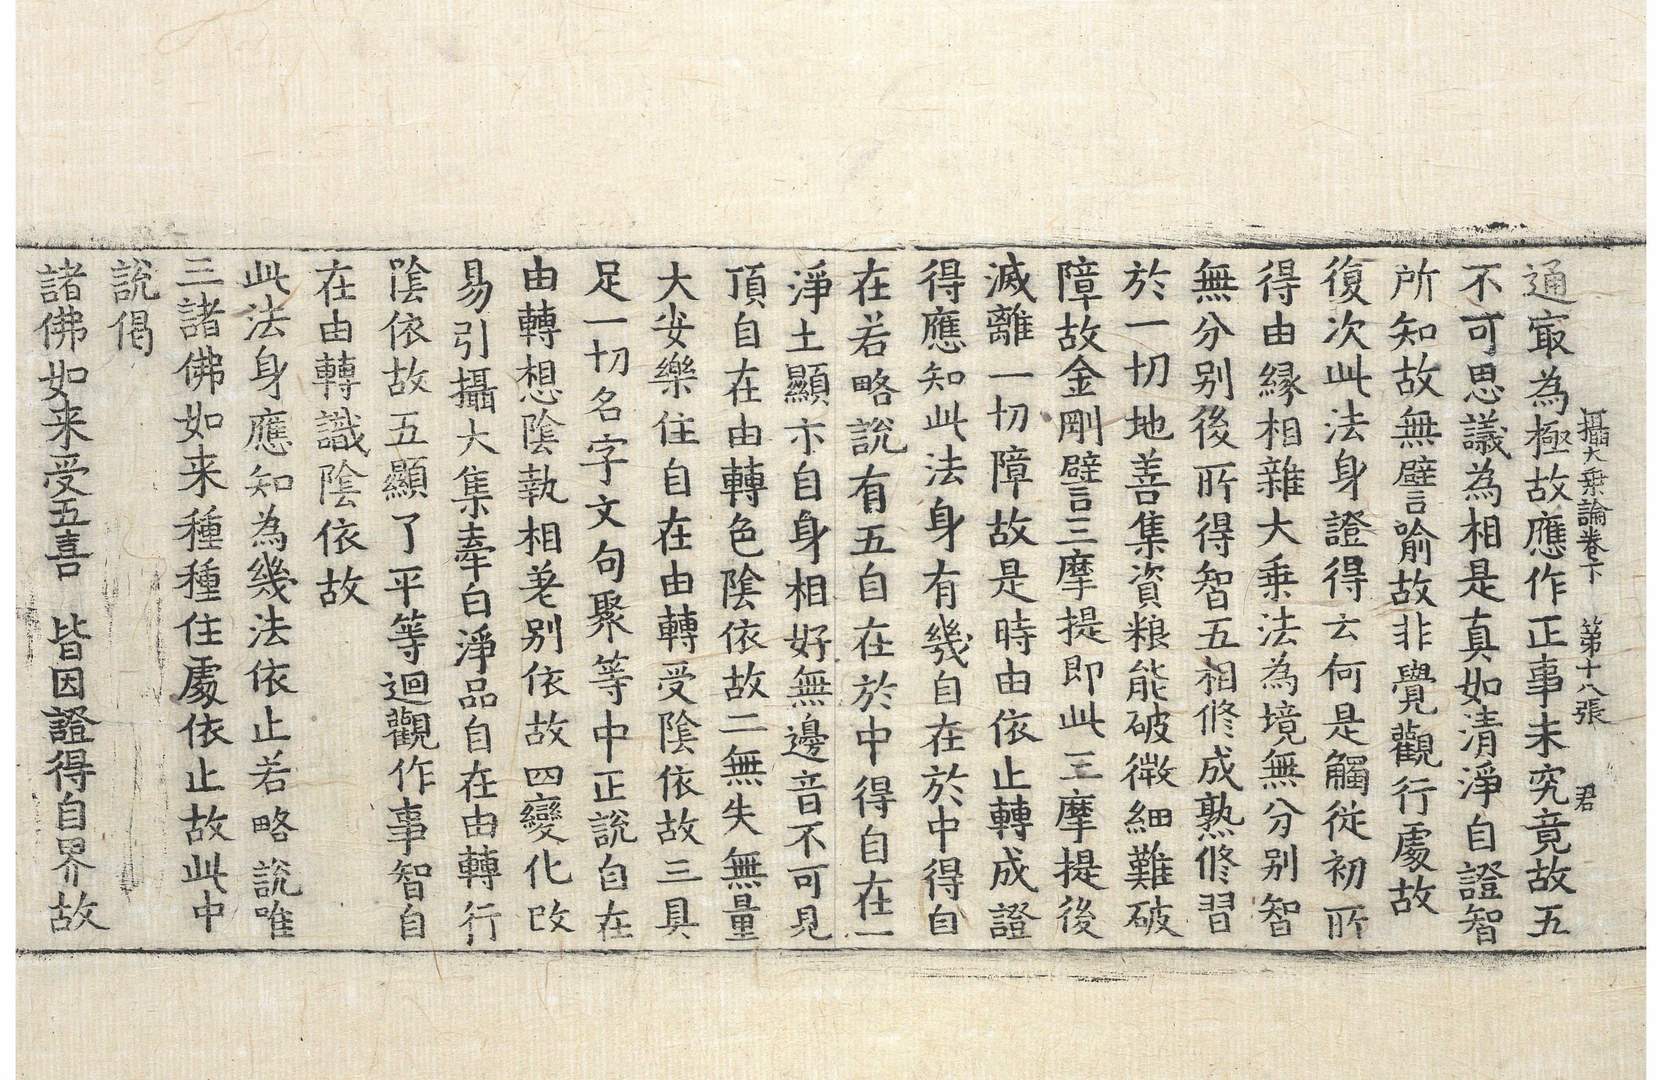 攝大乗論卷下 第十八張 君
通㝡為極故應作正事未究竟故五
不可思議為相是真如清淨自證智
所知故無譬喻故非覺觀行䖏故
復次此法身證得云何是觸從初所
得由縁相雜大乗法為境無分别智
無分别後所得智五相修成熟修習
於一切地善集資粮能破微細難破
障故金剛譬三摩提即此三摩提後
滅離一切障故是時由依止轉成證
得應知此法身有幾自在於中得自
在若略說有五自在於中得自在一
淨土顯示自身相好無邊音不可見
頂自在由轉色陰依故二無失無量
大安樂住自在由轉受陰依故三具
足一切名字文句聚等中正說自在
由轉想陰執相差别依故四變化改
易引攝大集牽白淨品自在由轉行
陰依故五顯了平等迴觀作事智自
在由轉識陰依故
此法身應知為幾法依止若略說唯
三諸佛如来種種住䖏依止故此中
說偈
諸佛如来受五喜 皆因證得自界故